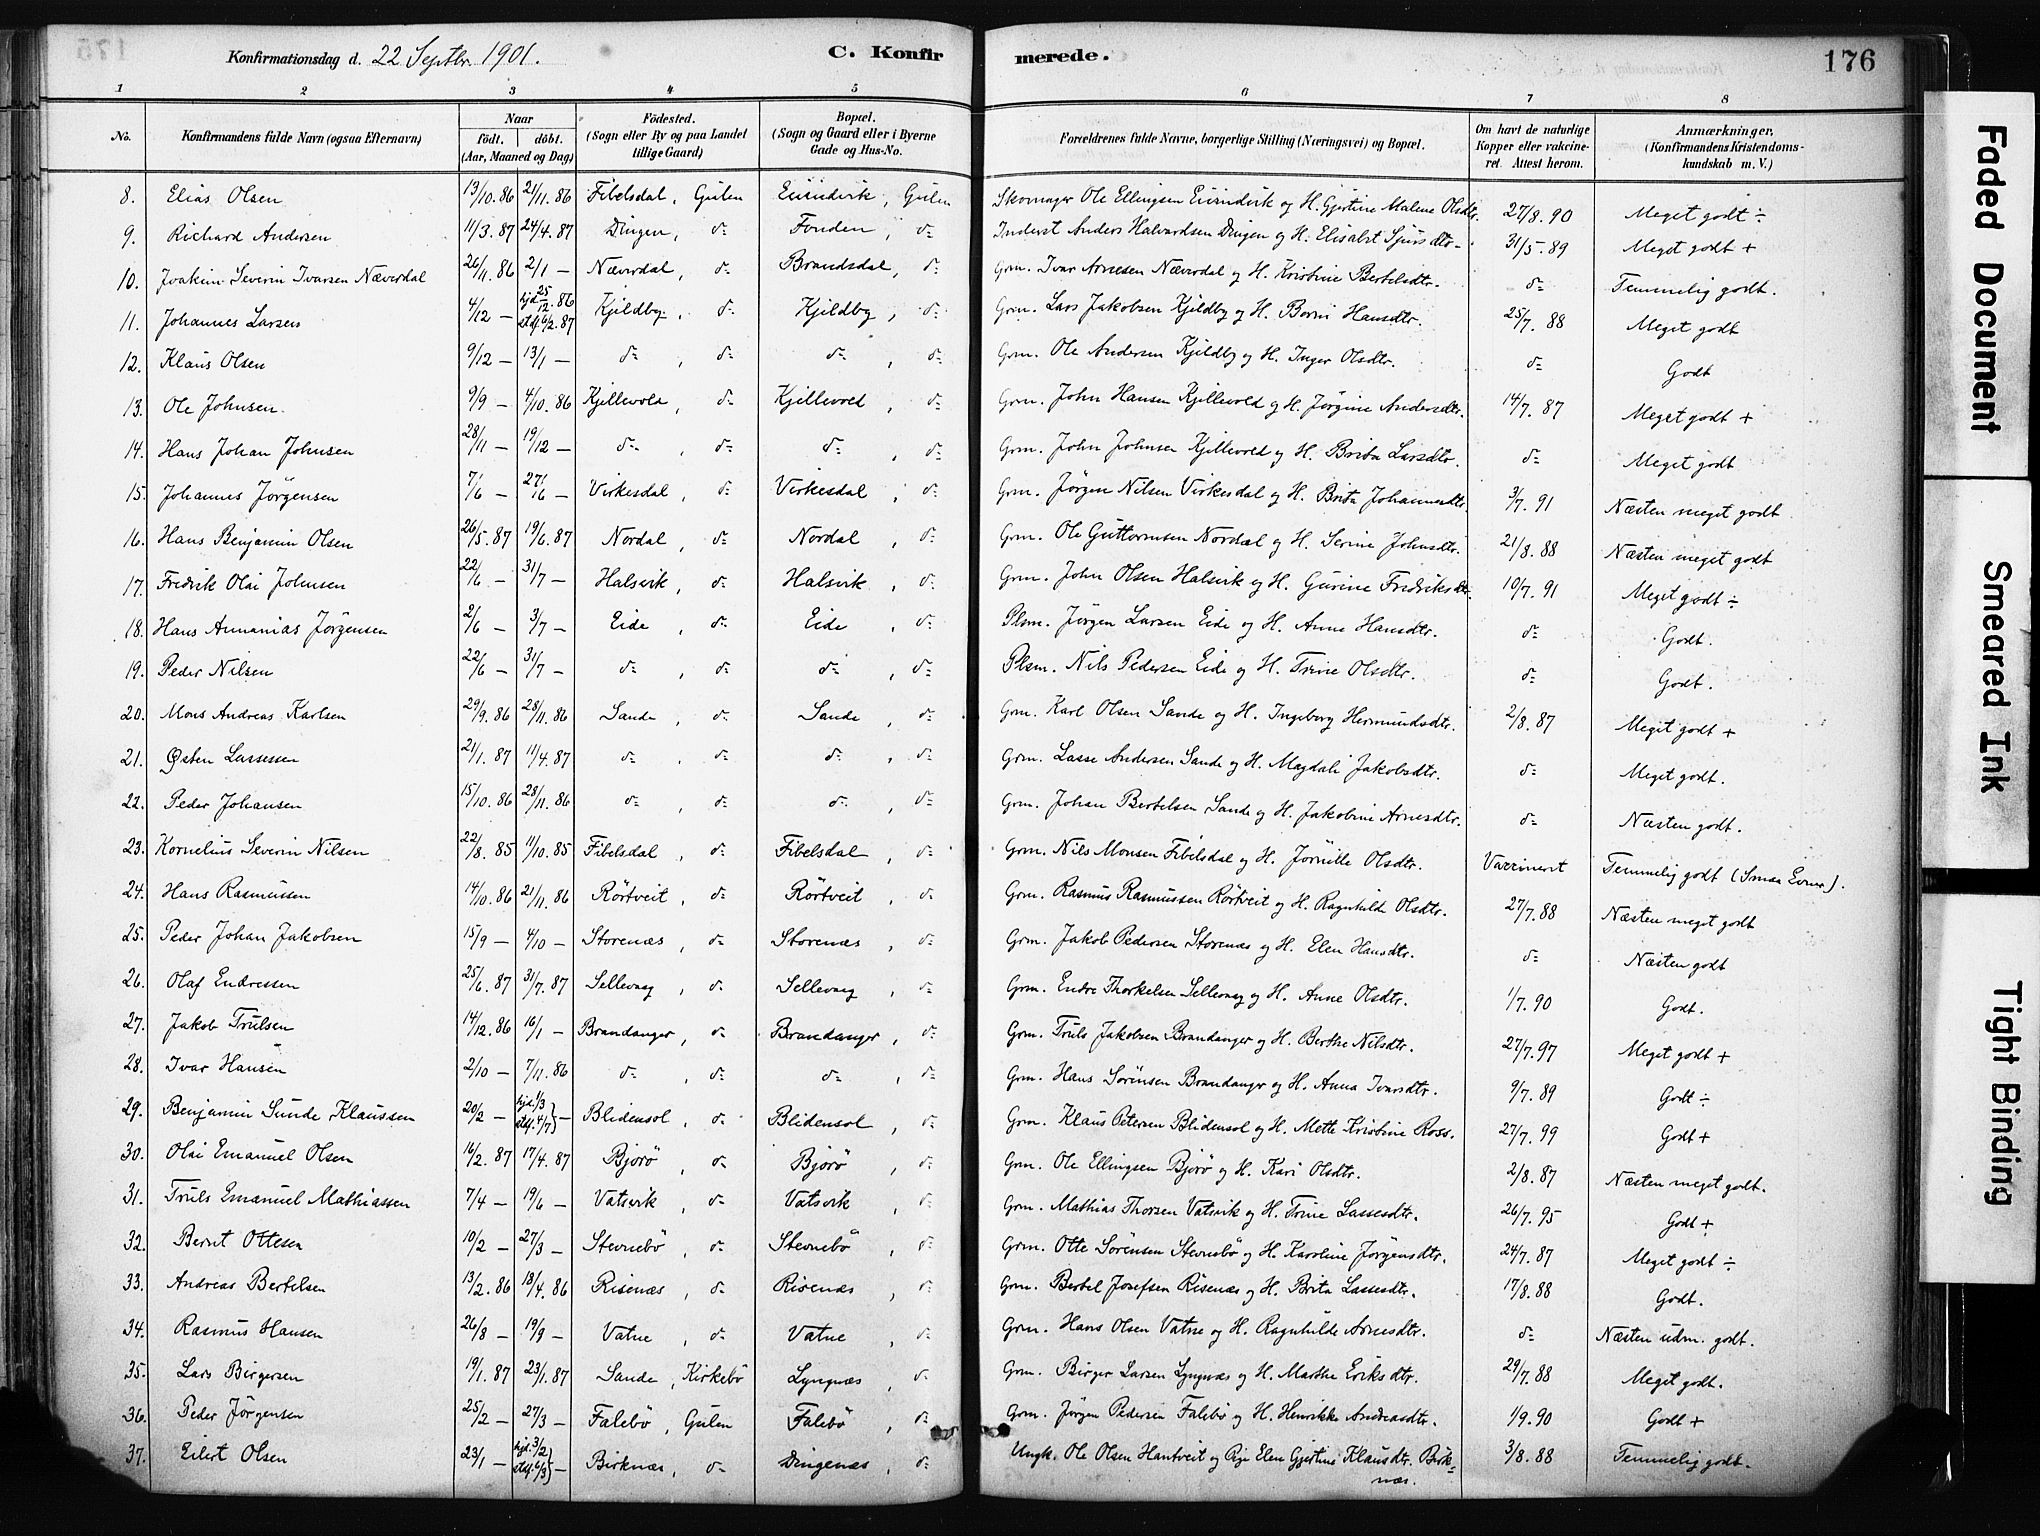 Konfirmationsdag d. 22 Septbr. 1901. C. Konfirmerede. 176
1 2 3 4 5 6 7 8
No. Konfirmandens fulde Navn (ogsaa Efternavn) Naar födt. döbt. (Aar, Maaned og Dag) Födested. (Sogn eller By og paa Landet tillige Gaard) Bopæl. (Sogn og Gaard eller i Byerne Gade og Hus-No. Forældrenes fulde Navne, borgerlige Stilling (Næringsvei) og Bopæl. Om havt de naturlige Kopper eller vakcineret. Attest herom. Anmærkninger. (Konfirmandens Kristendomskundskab m. V.)
8. Elias Olsen 13/10.86 21/11.86 Fibelsdal, Gulen Eivindvik, Gulen Skomager Ole Ellingsen Eivindvik og H. Gjertine Malene Olsdtr. 27/8.90 Meget godt ÷
9. Richard Andersen 11/3.87 24/4.87 Dingen, do Fonden, do Inderst Anders Halvardsen Dingen og H. Elisabet Sjursdtr. 31/5.89 Meget godt +
10. Joakim Severin Ivarsen Næverdal 26/11.86 2/1 — Nævrdal, do Brandsdal, do Grm. Ivar Arnesen Nævrdal og H. Kristine Bertelsdtr. do Temmelig godt.
11. Johannes Larsen 4/12 — hjd. 25/12.86 stdf. 6/2.87 Kjeldby, do Kjeldby, do Grm. Lars Jakobsen Kjeldby og H. Borni Hansdtr. 25/7.88 Meget godt
12. Klaus Olsen 9/12 — 13/1 — do, do do, do Grm. Ole Andersen Kjeldby og H. Inger Olsdtr. do Godt
13. Ole Johnsen 9/9 — 4/10.86 Kjellevold, do Kjellevold, do Grm. John Hansen Kjellevold og H. Jørgine Andersdtr. 14/7.87 Meget godt +
14. Hans Johan Johnsen 28/11 — 19/12 — do, do do, do Grm. John Johnsen Kjellevold og H. Brita Larsdtr. do Meget godt
15. Johannes Jörgensen 7/6 — 27/6 — Virkesdal, do Virkesdal, do Grm. Jørgen Nilsen Virkesdal og H. Brita Johannesdtr. 3/7.91 Næsten meget godt
16. Hans Benjamin Olsen 26/5.87 19/6.87 Nordal, do Nordal, do Grm. Ole Guttormsen Nordal og H. Serine Johnsdtr. 21/8.88 Næsten meget godt
17. Fredrik Olai Johnsen 22/6 — 31/7 — Halsvik, do Halsvik, do Grm. John Olsen Halsvik og H. Gurine Fredriksdtr. 10/7.91 Meget godt ÷
18. Hans Annanias Jörgensen 2/6 — 3/7 — Eide, do Eide, do Plsm. Jörgen Larsen Eide og H. Anne Hansdtr. do Godt.
19. Peder Nilsen 22/6 — 31/7 — do, do do, do Plsm. Nils Pedersen Eide og H. Trine Olsdtr. do Godt.
20. Mons Andreas Karlsen 29/9.86 28/11.86 Sande, do Sande, do Grm. Karl Olsen Sande og H. Ingeborg Hermundsdtr. 2/8.87 Meget godt +
21. Østen Lassesen 21/1.87 11/4.87 do, do do, do Grm. Lasse Andersen Sande og H. Magdali Jakobsdtr. do Meget godt.
22. Peder Johansen 15/10.86 28/11.86 do, do do, do Grm. Johan Bertelsen Sande og H. Jakobine Arnesdtr. do Næsten godt.
23. Kornelius Severin Nilsen 22/8.85 11/10.85 Fibelsdal, do Fibelsdal, do Grm. Nils Monsen Fibelsdal og H. Jørnille Olsdtr. Vaccineret Temmelig godt (Smaa Evner).
24. Hans Rasmussen 14/10.86 21/11.86 Rörtveit, do Rörtveit, do Grm. Rasmus Rasmussen Rörtveit og H. Ragnhilde Olsdtr. 27/7.88 Næsten meget godt
25. Peder Johan Jakobsen 15/9 — 4/10 — Storenæs, do Storenæs, do Grm. Jakob Pedersen Storenæs og H. Elen Hansdtr. do Næsten godt
26. Olaf Endresen 25/6.87 31/7.87 Sellevaag, do Sellevaag, do Grm. Endre Thorkelsen Sellevaag og H. Anne Olsdtr. 1/7.90 Godt.
27. Jakob Trulsen 14/12.86 16/1 — Brandanger, do Brandanger, do Grm. Truls Jakobsen Brandanger og H. Berthe Nilsdtr. 27/7.97 Meget godt +
28. Ivar Hansen 2/10 — 7/11.86 do, do do, do Grm. Hans Sørensen Brandanger og H. Anna Ivarsdtr. 9/7.89 Godt ÷
29. Benjamin Sunde Klaussen 20/2 — hjd. 1/3 stdf. 4/7 — Blidensol, do Blidensol, do Grm. Klaus Petersen Blidensol og H. Mette Kristine Ross. 27/7.99 Godt +
30. Olai Emanuel Olsen 16/2.87 17/4.87 Bjorö, do Bjorö, do Grm. Ole Ellingsen Bjorö og H. Kari Olsdtr. 2/8.87 Næsten meget godt.
31. Truls Emanuel Mathiassen 7/4 — 19/6 — Vatsvik, do Vatsvik, do Grm. Mathias Thorsen Vatsvik og H. Trine Lassesdtr. 26/7.95 Godt +
32. Bernt Ottesen 10/2 — 27/3 — Stevnebö, do Stevnebö, do Grm. Otte Sörensen Stevnebö og H. Karoline Jörgensdtr. 24/7.87 Meget godt ÷
33. Andreas Bertelsen 13/2.86 18/4.86 Risenæs, do Risenæs, do Grm. Bertel Josefsen Risenæs og H. Brita Lassesdtr. 17/8.88 Godt.
34. Rasmus Hansen 26/8 — 19/9 — Vatne, do Vatne, do Grm. Hans Olsen Vatne og H. Ragnhilde Arnesdtr. do Næsten udm. godt.
35. Lars Birgersen 19/1.87 23/1.87 Sande, Kirkebö Lyngnæs, do Grm. Birger Larsen Lyngnæs og H. Marthe Eriksdtr. 29/7.88 Meget godt.
36. Peder Jörgensen 25/2 — 27/3 — Falebö, Gulen Falebö, do Grm. Jörgen Pedersen Falebö og H. Henrikke Andreasdtr. 1/9.90 Godt +
37. Eilert Olsen 23/1 — hjd. 3/2 stdf. 6/3 — Birknæs, do Dingenæs, do Ungk. Ole Olsen Hantveit og Pige Elen Gjertine Klausdtr. Birknæs. 3/8.88 Temmelig godt.
Faded Document
Smeared Ink
Tight Binding